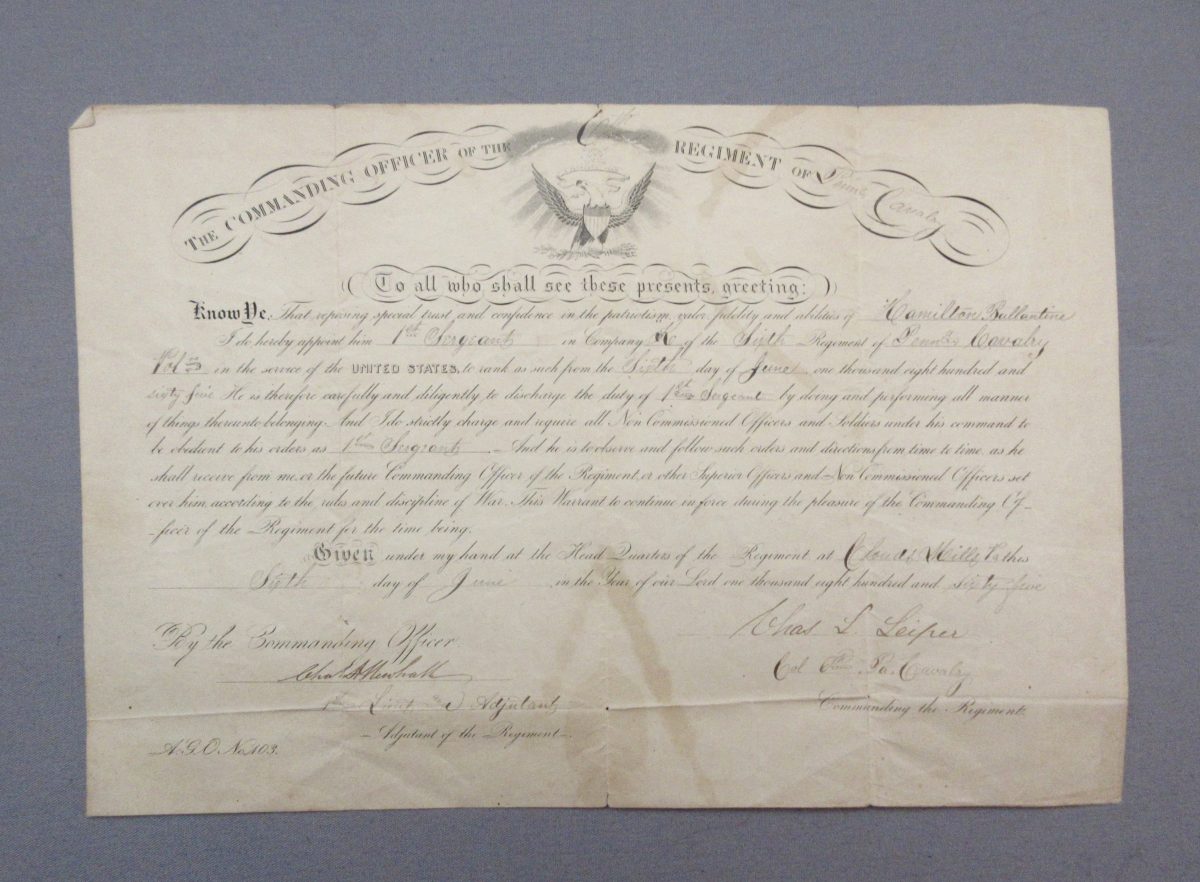 THE COMMANDING OFFICER OF THE REGIMENT OF Cavalry
To all who shall see these presents, greeting:
Know Ye, That reposing special trust and confidence in the patriotism, valor, fidelity and abilities of Hamilton Ballantine
I do hereby appoint him 1st Sergeant in Company of the Sixth Regiment of Penna Cavalry
Vols in the service of the UNITED STATES, to rank as such from the Sixth day of June one thousand eight hundred and
sixty five He is therefore carefully and diligently to discharge the duty of 1st Sergeant by doing and performing all manner
of things thereunto belonging. And I do strictly charge and require all Non Commissioned Officers and Soldiers under his command to
be obedient to his orders as 1st Sergeant. And he is to observe and follow such orders and directions from time to time, as he
shall receive from me, or the future Commanding Officer of the Regiment, or other Superior Officers and Non Commissioned Officers set
over him, according to the rules and discipline of War. This Warrant to continue in force during the pleasure of the Commanding Of-
-ficer of the Regiment for the time being.
Given under my hand at the Head Quarters of the Regiment at Clouds Mills Va this
Sixth day of June in the Year of our Lord one thousand eight hundred and sixty five
By the Commanding Officer
Chas L Leiper
Col Pa. Cavalry
Commanding the Regiment.
1st Lieut Adjutant
-Adjutant of the Regiment-
A.G.O. No. 103.